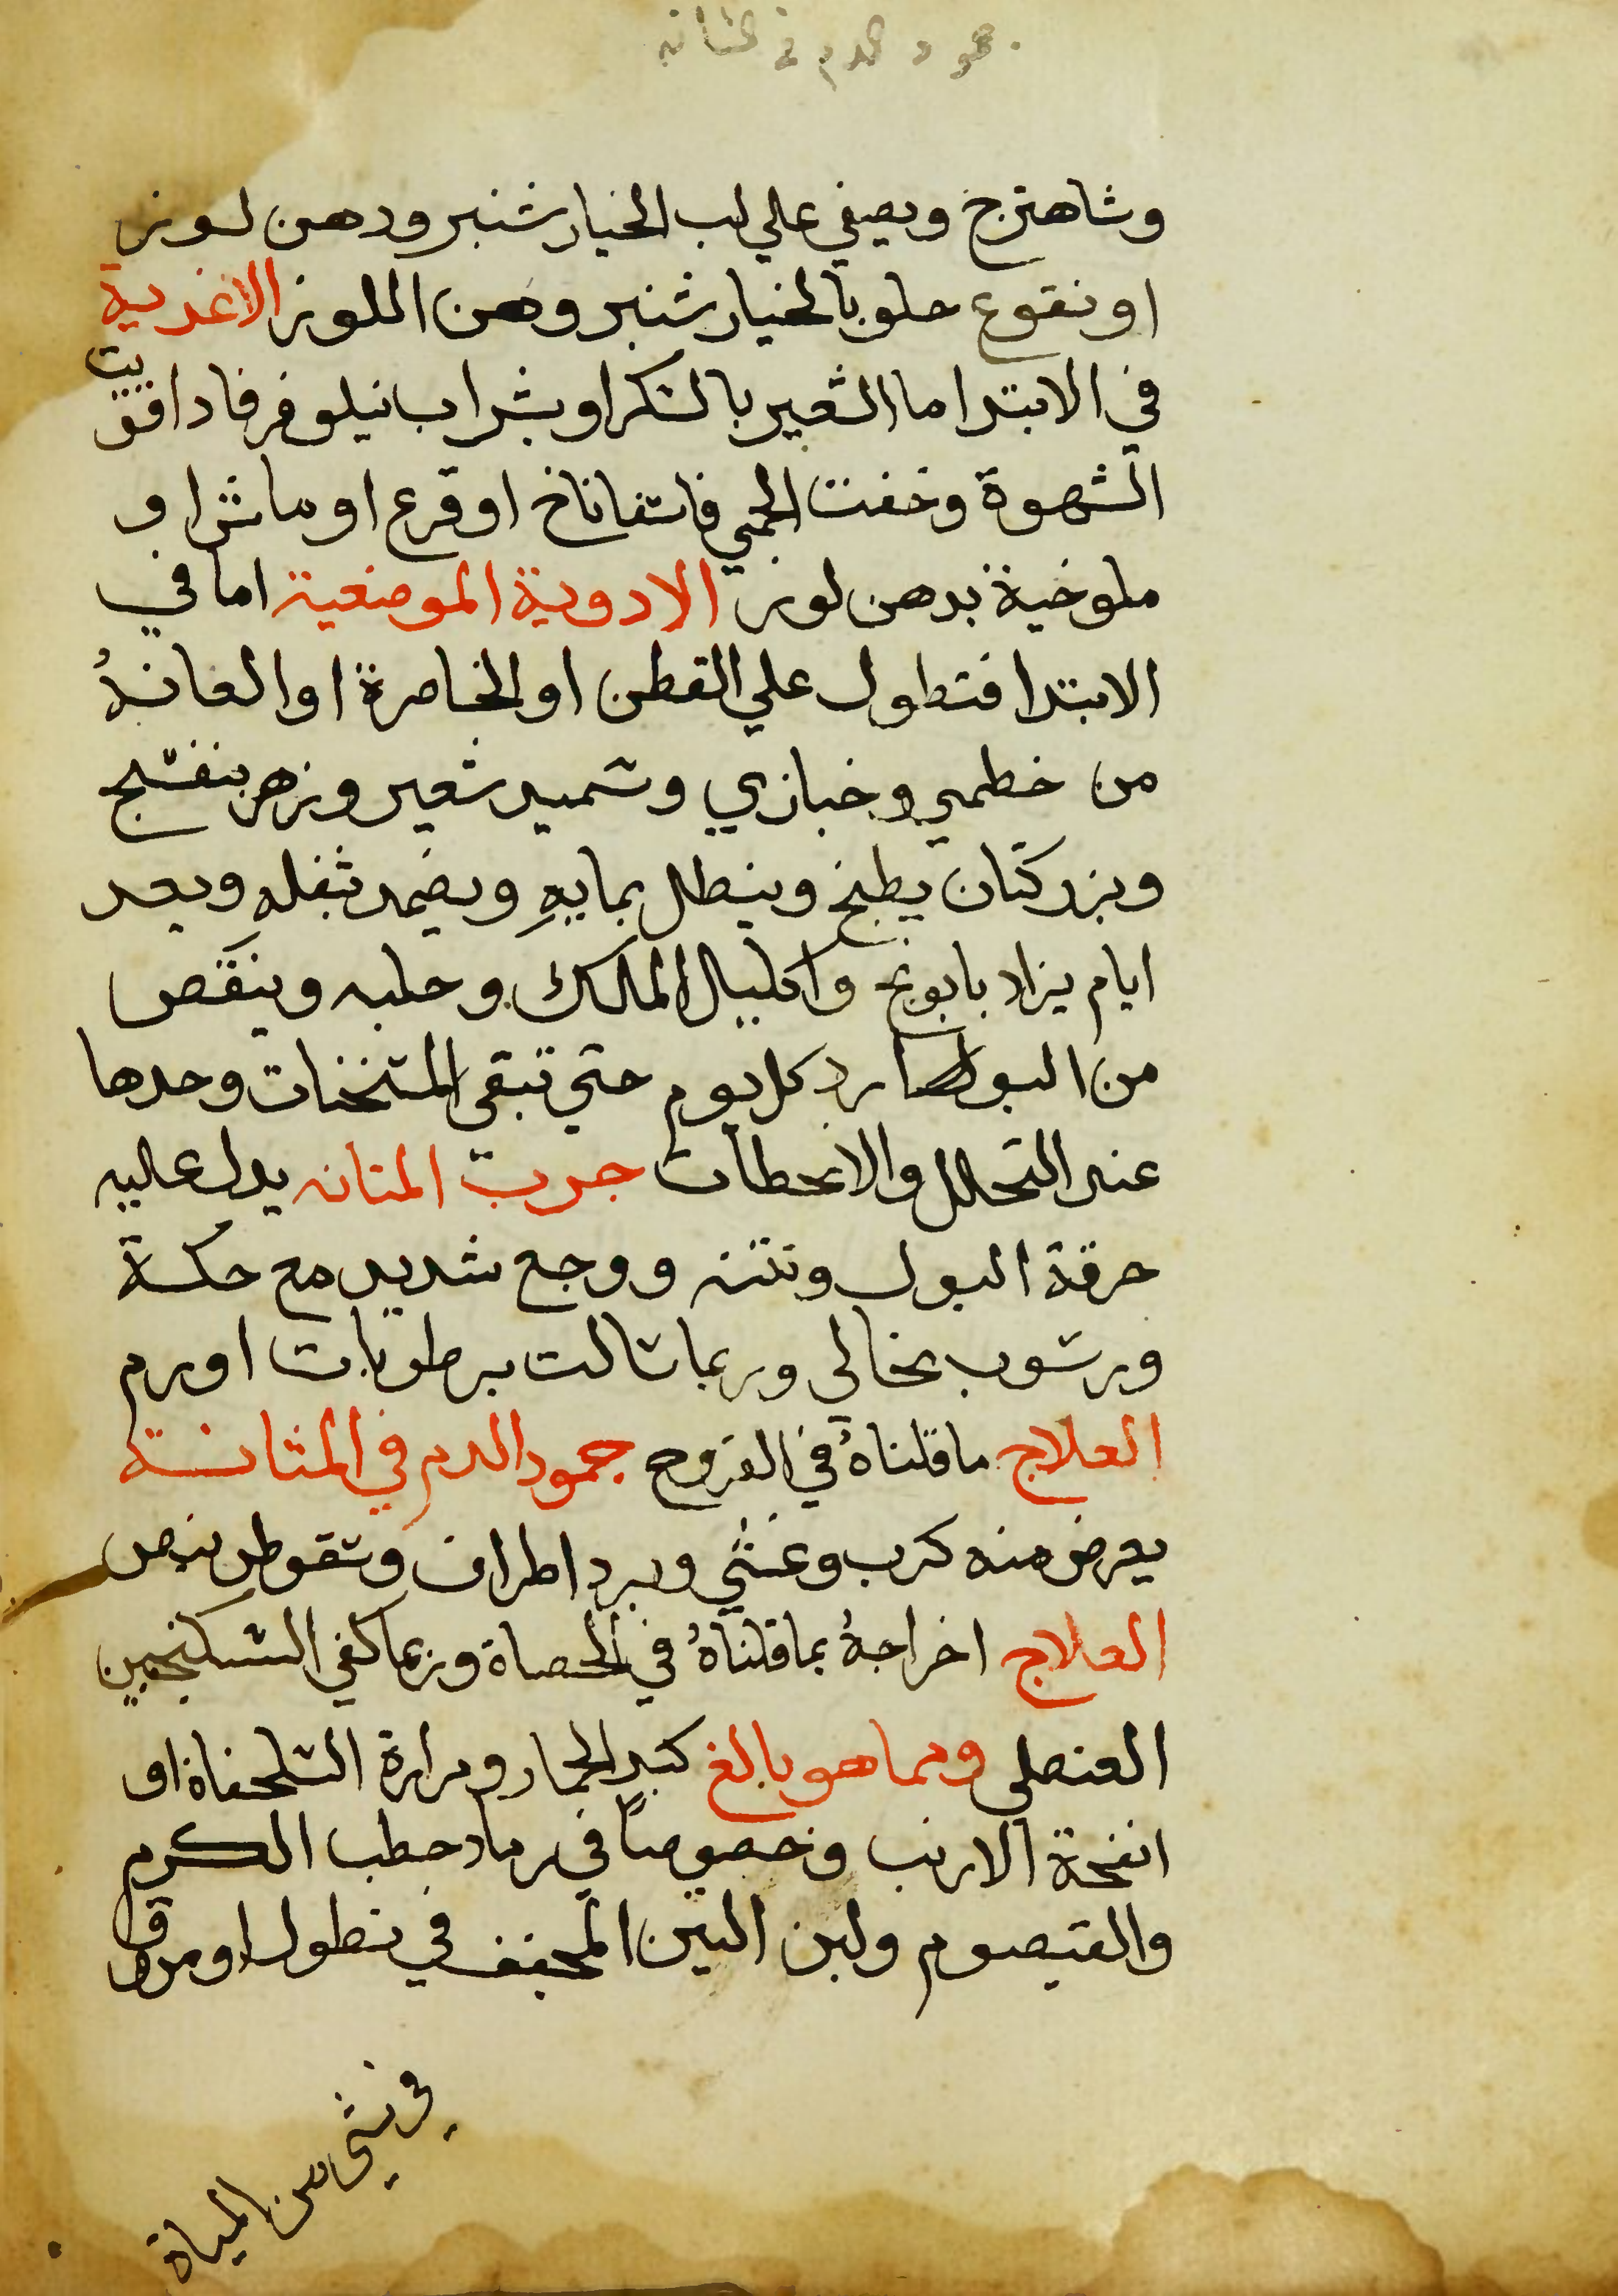 جمود الدم في المثانه
وشاهترج ويصفي علي لب الخيار شنبر ودهن لوز
او نقوع حلو بالخيار شنبر وهن الملوز الاغدية
في الابتدا ما الشعير بالسكر او بشراب نيلوفر فاداققيت
الشهوة وخفت الحمي فاسفاناخ او قرع او ماش او
ملوخية بدهن لوز الادوية الموضعية اما في
الابتدا فتطول علي القطن او الخاصرة او العانة
من خطمي وخبازي وسميد شعير وزهر بنفسج
وبزر كتان يطبخ وينطل بمايهِ ويضمد بثفله وبعد
ايام يزاد بابونج واكليل الملك وحلبه وينقص
من البوارد كل يوم حتي تبقي المسخنات وحدها
عند التحلل والانحطاط جرب المتانه يدل عليه
حرقة البول ونتنه ووجع شديد مع حكة
ورسوب نخالي وربما سالت برطوبات او دم
العلاج ما قلناهُ في القروح جمود الدم في المثانة
يعرض منه كرب وغشي وبرد اطراف وسقوط نبض
العلاج اخراجهُ بما قلناهُ في الحصاة وربما كفي السكنجبين
العنصلي ومما هو بالغ كبد الحمار ومرارة السلحفاة او
انفحة الارنب وخصوصاً في رماد حطب الكرم
والقيصوم ولبن التين المجفف في نطول او مرق
في شي من المياة